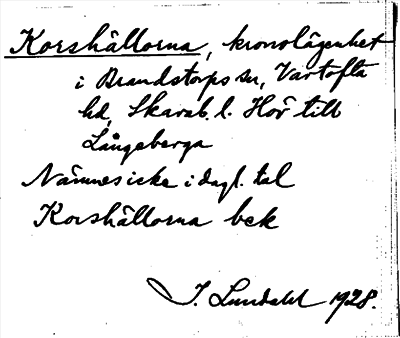 Korshällorna, kronolägenhet
i Brandstorps sn, Vartofta
hd, Skarab. l. Hör till
Långeberga
Nämnes icke i dagl. tal
Korshällorna bek
I. Lundahl 1928.